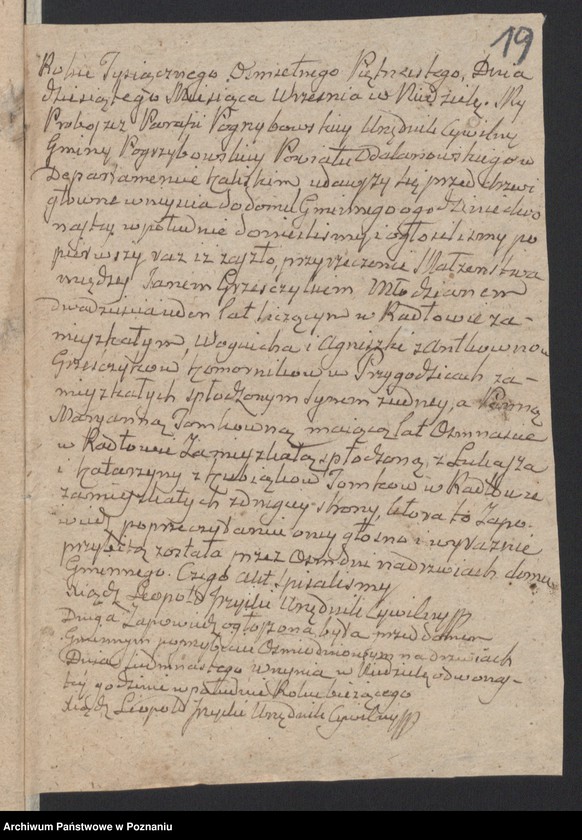 19
Roku Tysiącznego Osmsetnego Piętnastego, Dnia
dziesiątego Miesiąca Wrzesnia w Niedzielę. My
Proboszcz Parafii Pogrzybowskiey Urzędnik Cywilny
Gminy Pogrzybowskiey Powiatu Odalanowskiego w
Departamencie Kaliskim, udawszy się przed drzwi
główne wniyscia do domu Gminnego o godzinie dwo
nastey w południe donieslismy i ogłosilismy po
pierwszy raz iz zaszło przyrzeczenie Małzenstwa
między Janem Grzesczykiem Młodzianem
dwadziescia ieden lat liczącym w Radłowie za-
mięszkałym, Woycicha i Agnieszki z Antkow now
Grzesczyków Komorników w Przygodzicach za-
mięszkałych spłodzonym Synem z iedney, a Panną
Maryanną Tomkowną maiącą lat Osmnascie
w Radłowie Zamięszkałą, spłodzoną z Łukasza
i Katarzyny z Kubiaków Tomków w Radłowie
zamięszkałych z drugiey strony, która to Zapo-
wiedz po przeczytaniu oney głosno i wyraznie
przybitą została przez Osm dni na drzwiach domu
Gminnego. Czego akt spisalismy
Xiądz Leopold Urzędnik Cywilny
Druga Zapowiedz ogłoszona była przed domem
Gminnym po wybiciu Osmiodniowym na drzwiach
Dnia siedmnastego w Niedzielę o dwonas-
tey godzinie w południe Roku biezącego
Xiądz Leopold Urzędnik Cywilny
Archiwum Państwowe w Poznaniu